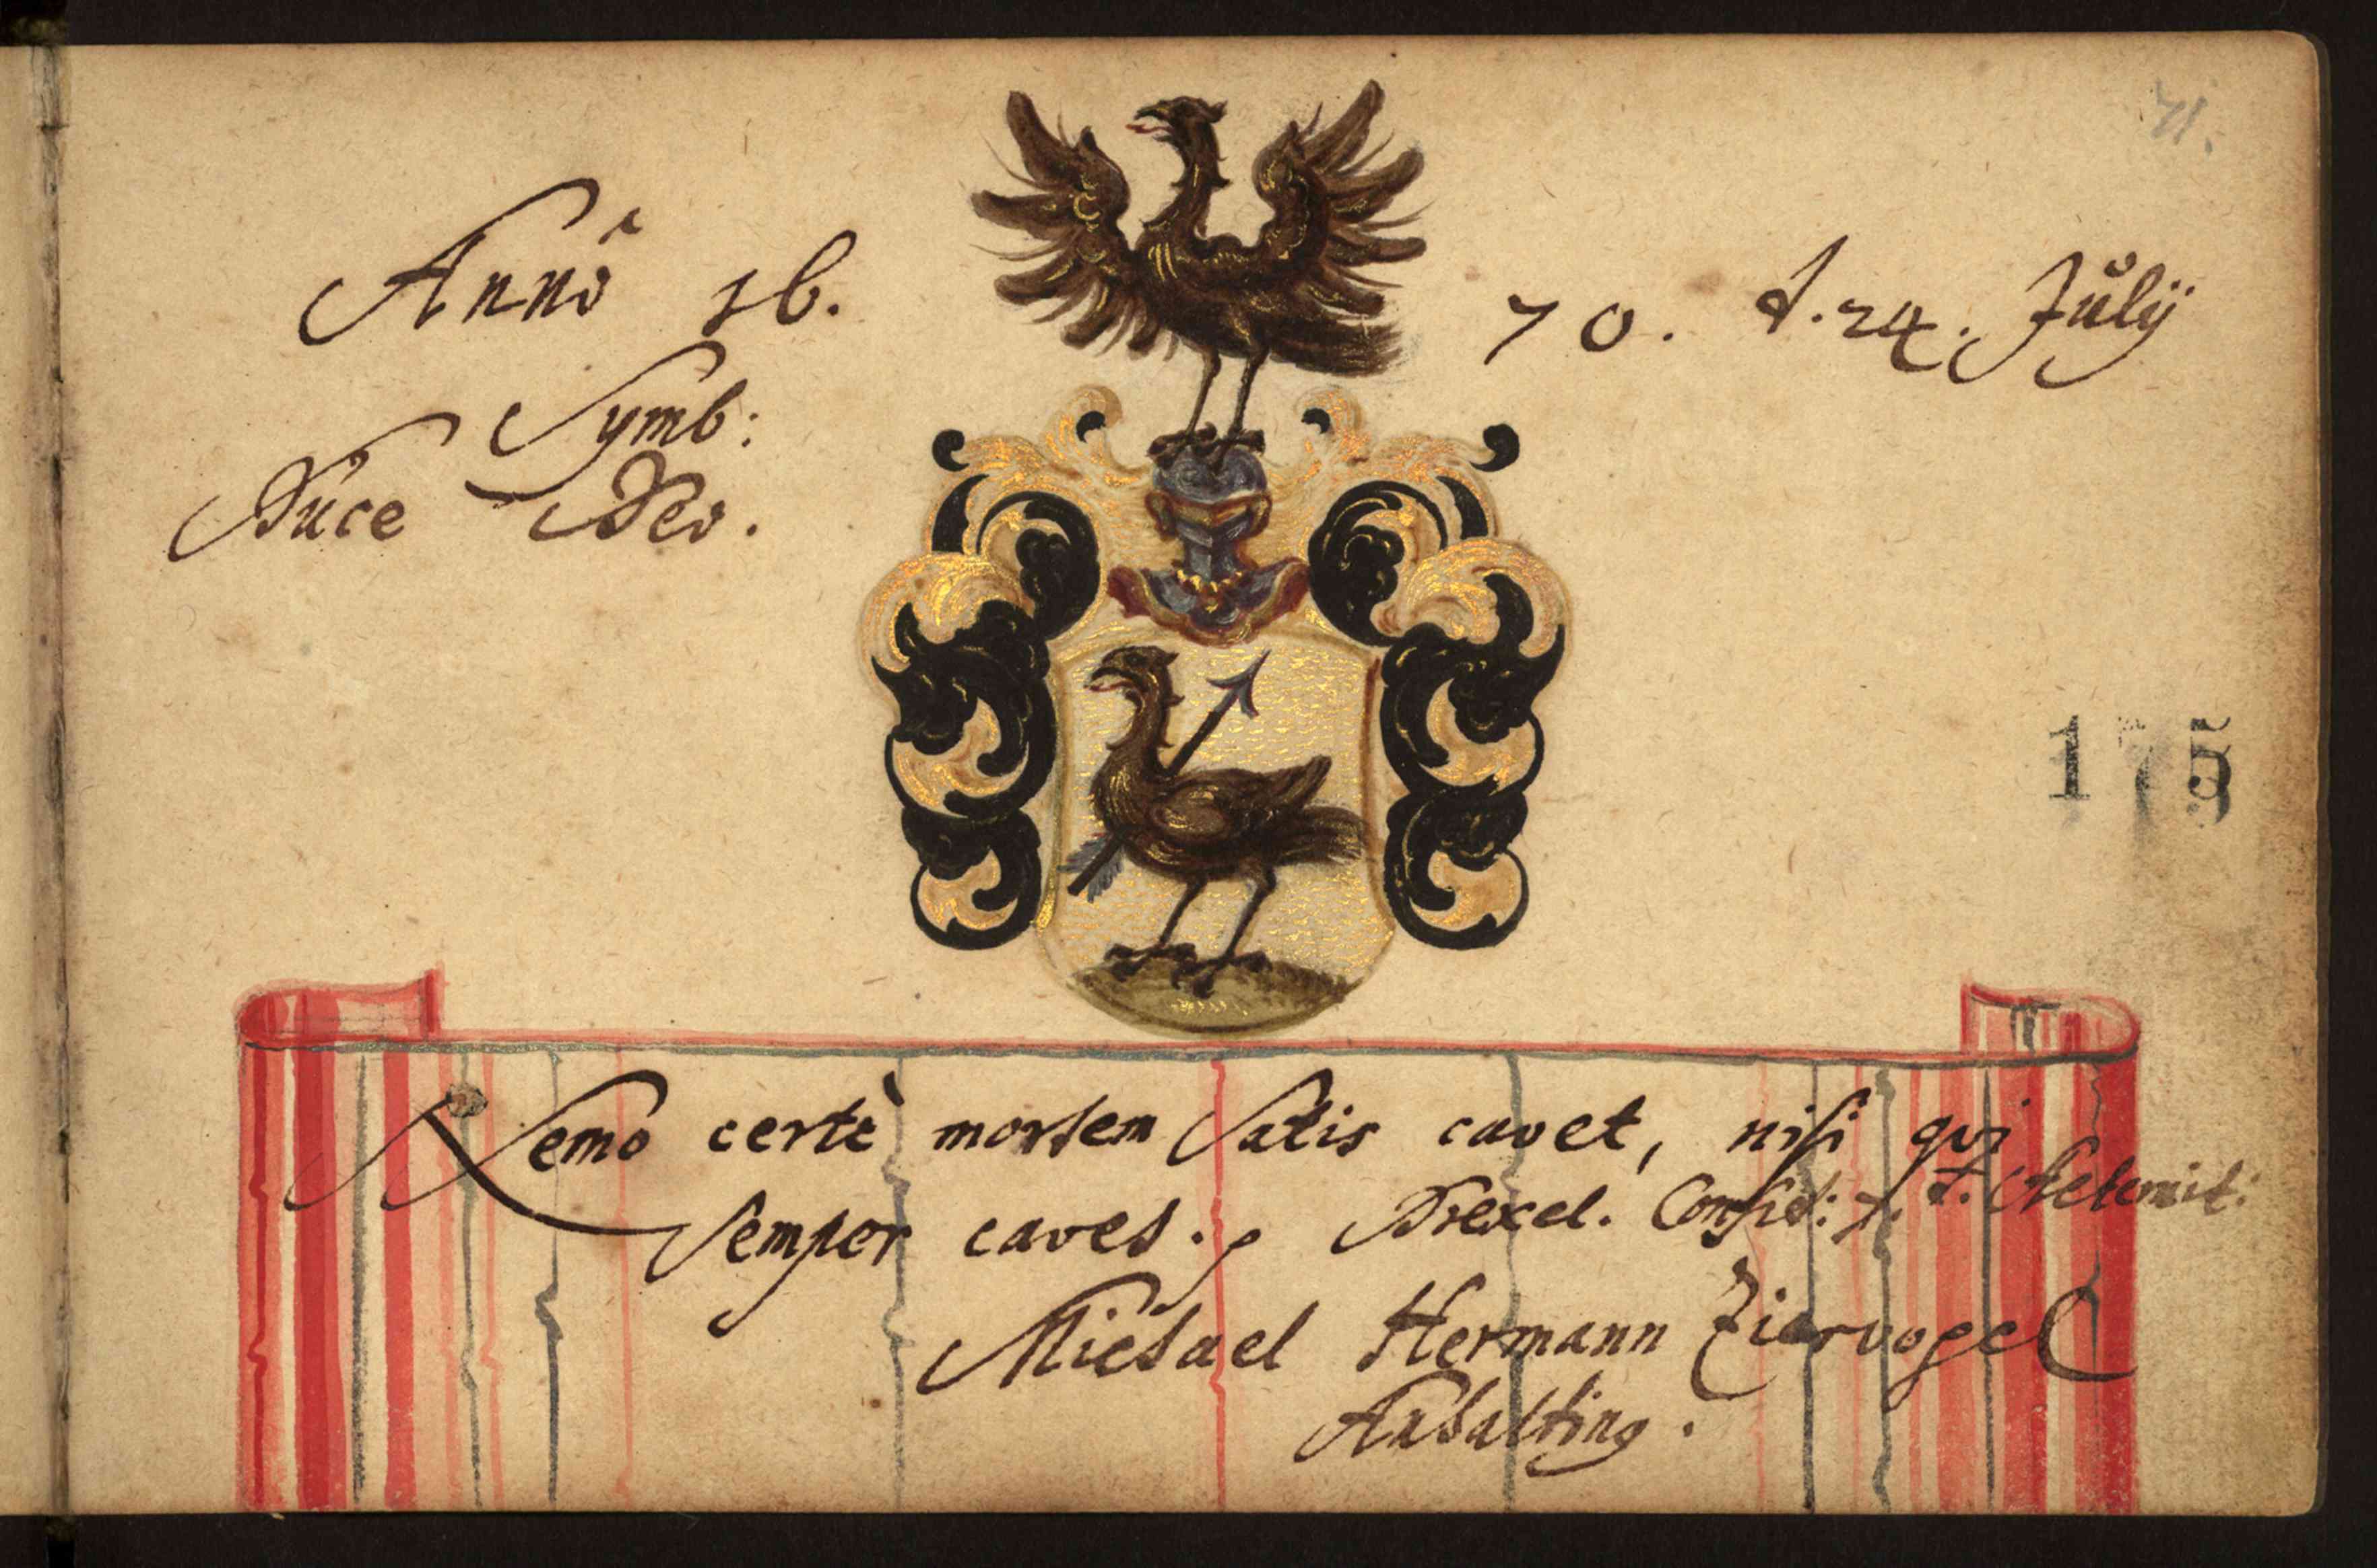 71.
Anno 16. 70. d. 24. Julij
Symb:
Duce Deo.
175
Nemo certè mortem satis cavet, nisi qui
semper cavet. Drexel. Consid: 7. d. Aeternit:
Michael Hermann Ziervogel
Anhalting.